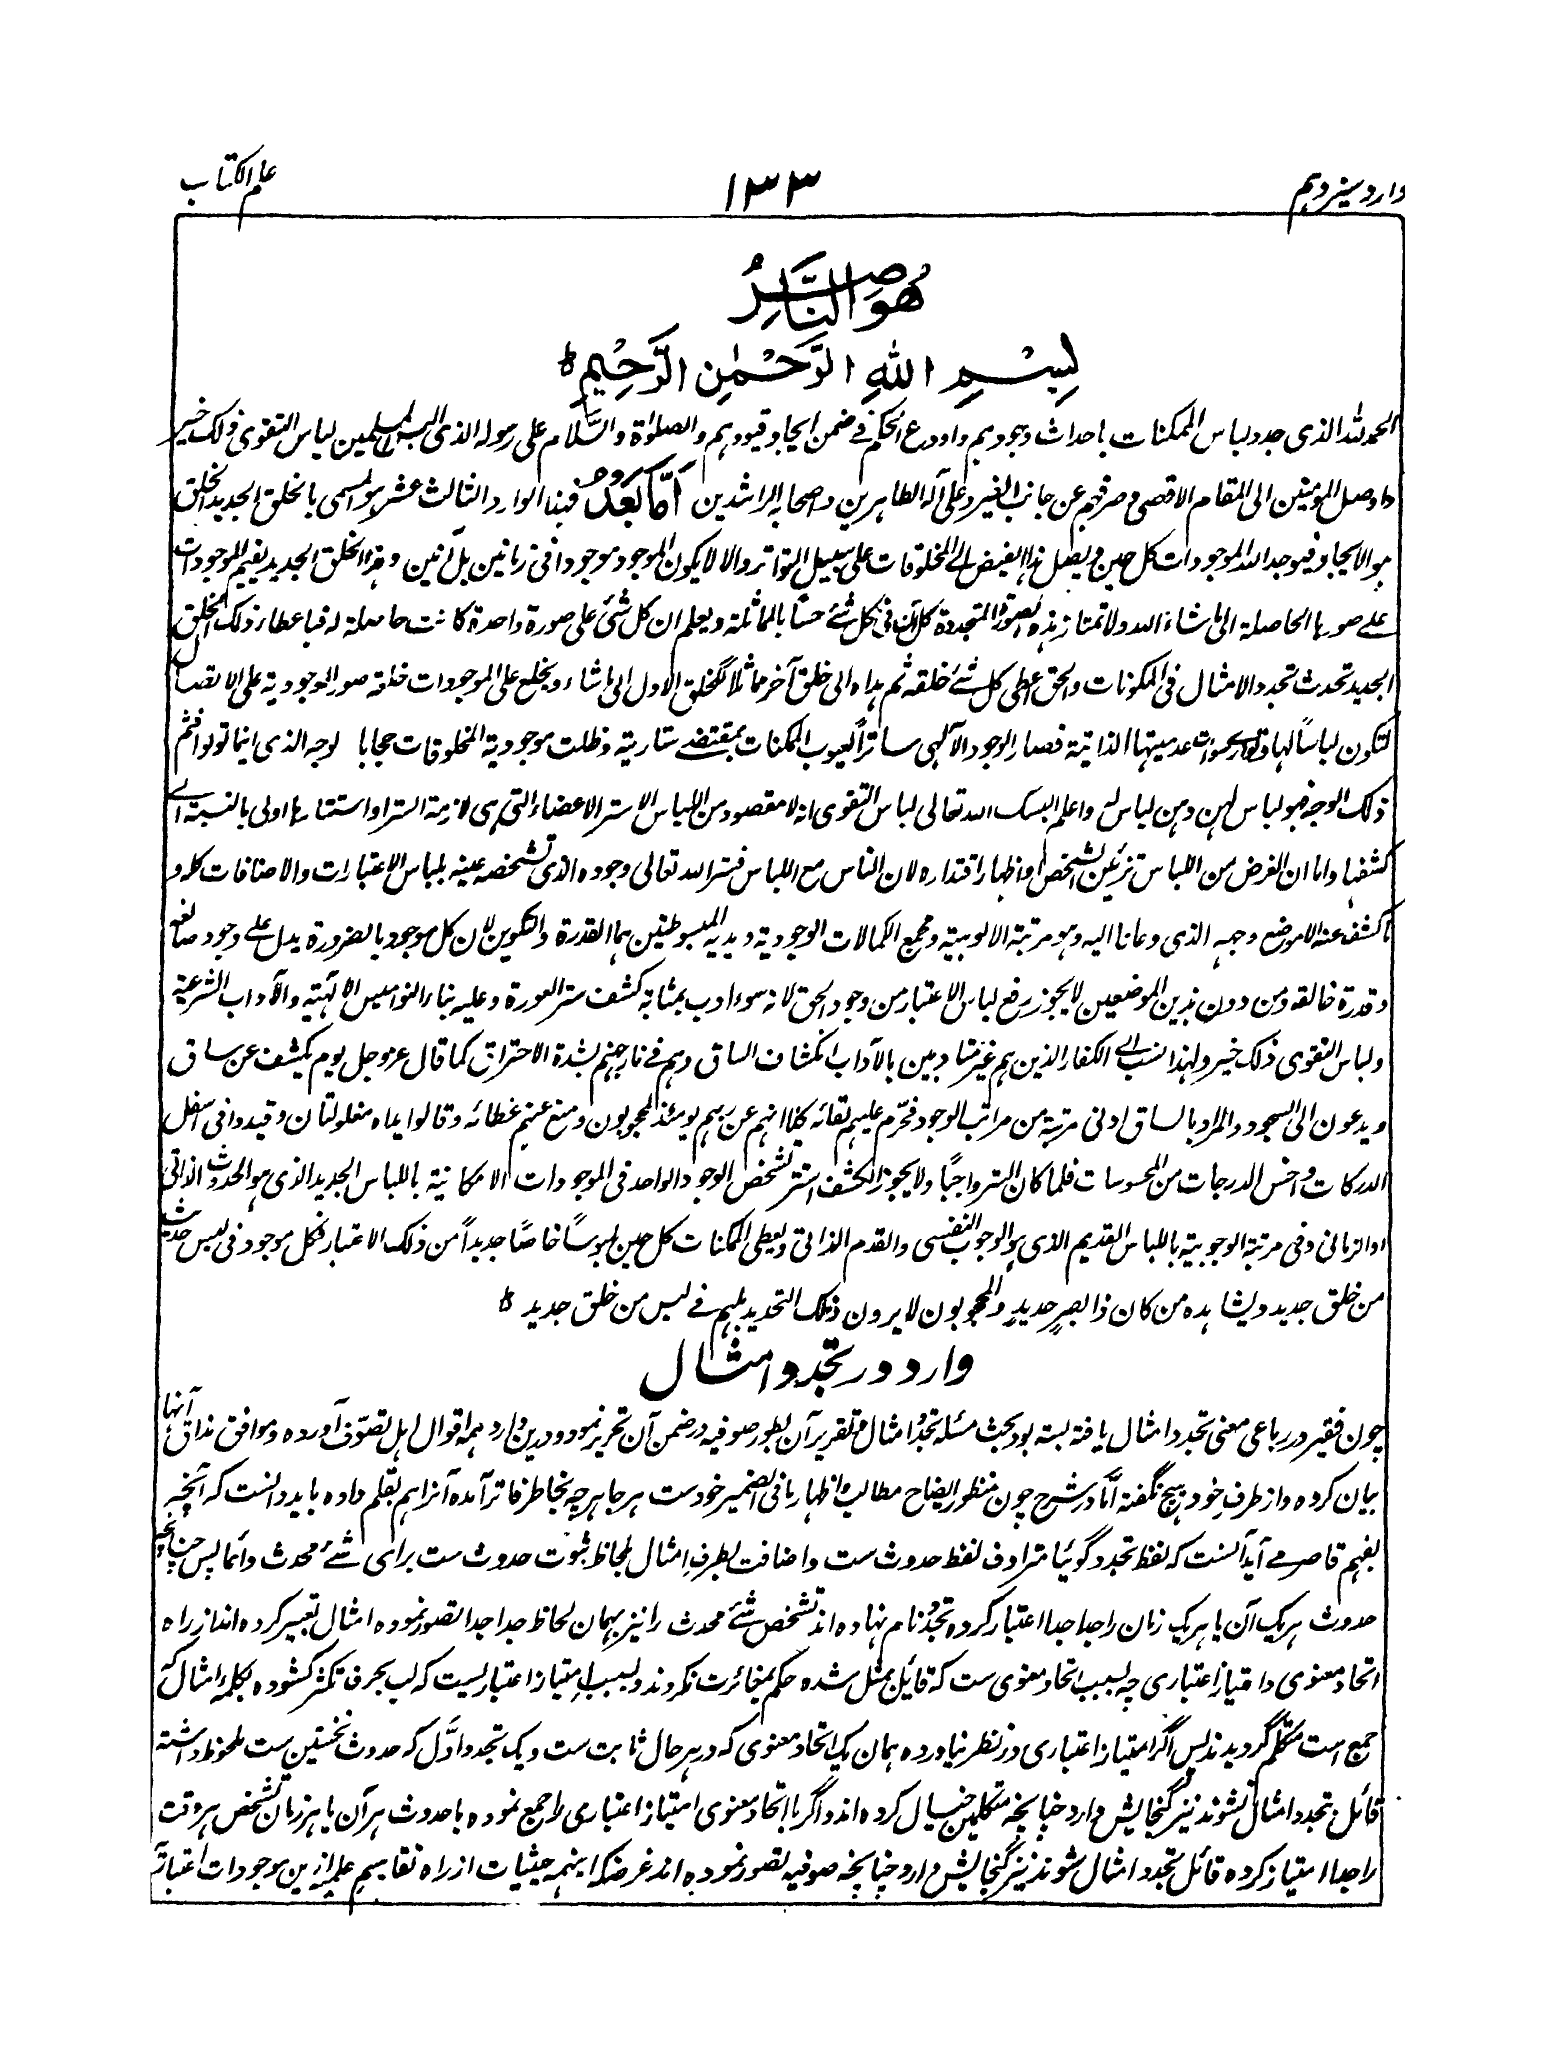 وارد سیزدہم
۱۳۳
علم الکتاب
هُوَ النَّاصِرُ
بِسْمِ اللهِ الرَّحْمٰنِ الرَّحِيْمِ ط
الحمد للہ الذی جدد لباس الممکنات باحداث وجودہم واودع الحکم فی ضمن ایجاد قیودہم والصلوٰۃ والسَّلام علی رسولہ الذی البس المسلمین لباس التقوی ذلک خیر
واوصل المؤمنین الی المقام الاقصی وصرفہم عن جانب الغیر وعلی آلہ الطاہرین واصحابہ الراشدین أمّا بَعْدُ فہذا الوارد الثالث عشر ہو المسمی بالخلق الجدید الخلق
ہو الایجاد فیوجد اللہ الموجودات کل حین ویصل ہذا الفیض الے المخلوقات علی سبیل التواتر والا لا یکون الموجود موجودا فی زمانین بل آنین وہذا الخلق الجدید یقیم الموجودات
علے صورہا الحاصلۃ الی ماشاء اللہ ولا تمتاز ہذہ الصورۃ المتجددۃ کل آن فی کل شئے حسّا بالمماثلۃ ویعلم ان کل شئ علی صورۃ واحدۃ کانت حاصلۃ لہ فباعطاء ذلک الخلق
الجدید تحدث تجدد الامثال فی المکونات والحق اعطی کل شئے خلقہ ثم ہداہ الی خلق آخر مماثلا للخلق الاول الی ماشاء ویخلع علی الموجودات خلعۃ صور الموجودیۃ علی الاتصال
لتکون لباساً لہا وتواری سوات عدمیتہا الذاتیۃ فصار الوجود الآلٰہی ساتراً لعیوب الممکنات بمقتضے ستاریتہ وظلت موجودیۃ المخلوقات حجابا لوجہ الذی اینما تولوا فثم
ذلک الوجہ فہو لباس لہن وہن لباس لہ واعلم البسک اللہ تعالی لباس التقوی انہ لا مقصود من اللباس الا ستر الاعضاء التی ہی لازمۃ الستر او استتارہا اولی بالنسبۃ الے
کشفہا واما ان الغرض من اللباس تزئین الشخص او اظہار اقتدارہ لان الناس مع اللباس فستر اللہ تعالی وجودہ الذی تشخصہ عینہ بلباس الاعتبارات والاضافات کلہ و
ما کشف عنہ الا موضع وجہہ الذی دعانا الیہ وہو مرتبۃ الالوہیۃ ومجمع الکمالات الوجودیۃ ویدیہ المبسوطتین ہما القدرۃ والتکوین لان کل موجود بالضرورۃ یدل علے وجود صانعہ
وقدرۃ خالقہ ومن دون ہذین الموضعین لا یجوز رفع لباس الاعتبار من وجود الحق لانہ سوء ادب بمثابۃ کشف ستر العورۃ وعلیہ بناء النوامیس الالٰہیۃ والآداب الشرعیۃ
ولباس التقوی ذلک خیر ولہذا نسب الے الکفار الذین ہم غیر متادبین بالآداب انکشاف الساق وہم فی نار جہنم بشدۃ الاحتراق کما قال عز وجل یوم یکشف عن ساق
ویدعون الی السجود والمراد بالساق ادنی مرتبۃ من مراتب الوجود فحرّم علیہم لقائہ کلا انہم عن ربہم یومئذ لمحجوبون ومنع عنہم غطائہ وقالوا یداہ مغلولتان وقیدوا فی اسفل
الدرکات واخس الدرجات من المحسوسات فلما کان الستر واجبًا ولا یجوز الکشف استتر تشخص الوجود الواحد فی الموجودات الامکانیۃ باللباس الجدید الذی ہو الحدوث الذاتی
او الزمانی وفی مرتبۃ الوجوبیۃ باللباس القدیم الذی ہو الوجوب النفسی والقدم الذاتی ویعطی الممکنات کل حین لبوساً خاصًا جدیداً من ذلک الاعتبار فکل موجود فی لبس حدیث
من خلق جدید ویشاہدہ من کان ذا بصر حدید والمحجوبون لا یرون ذلک التجدید بل ہم فے لبس من خلق جدید ط
وارد در تجدد امثال
چون فقیر در رباعی معنی تجدد امثال یافتہ بستہ بود بحث مسئلہ تجدّد امثال وتقریر آن بطور صوفیہ در ضمن آن تحریر نمودہ ودرین وارد ہمہ اقوال اہل تصوّف آوردہ وموافق مذاق آنہا
بیان کردہ واز طرف خود ہیچ نگفتہ امّا در شرح چون منظور ایضاح مطالب واظہار ما فی الضمیر خودست ہر جا ہر چہ بخاطر فاتر آمدہ آنرا ہم بقلم دادہ باید دانست کہ آنچہ
بفہم قاصر مے آید آنست کہ لفظ تجدد گوئیا مترادف لفظ حدوث ست واضافت بطرف امثال بلحاظ ثبوت حدوث ست برای شئے محدث دائما پس چنانچہ
حدوث ہر یک آن یا ہر یک زمان را جدا جدا اعتبار کردہ تجدّد نام نہادہ اند تشخص شئے محدث را نیز بہمان لحاظ جدا جدا تصور نمودہ امثال تعبیر کردہ اند از راہ
اتحاد معنوی وامتیاز اعتباری چہ بسبب اتحاد معنوی ست کہ قائل بمثل شدہ حکم بمغائرت نکردند وبسبب امتیاز اعتباریست کہ لب بحرف تکثر کشودہ بکلمہ امثال کہ
جمع است متکلم گردیدند پس اگر امتیاز اعتباری در نظر نیاوردہ ہمان یک اتحاد معنوی کہ در ہر حال ثابت ست ویک تجدد اوّل کہ حدوث نخستین ست ملحوظ داشتہ
قائل بتجدد امثال نشوند نیز گنجایش دارد چنانچہ متکلمین خیال کردہ اند واگر با اتحاد معنوی امتیاز اعتباری را جمع نمودہ باحدوث ہر آن یا ہر زمان تشخص ہر وقت
را جدا امتیاز کردہ قائل بتجدد امثال شوند نیز گنجایش دارد چنانچہ صوفیہ تصور نمودہ اند غرضکہ اینہمہ حیثیات از راہ تقاسیم علمیہ ازین موجودات اعتباریہ